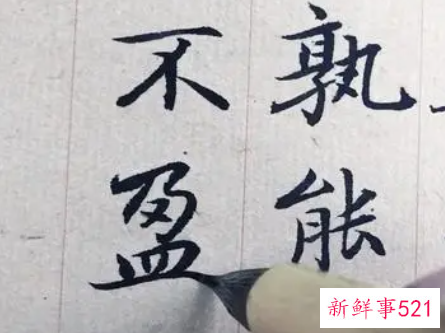 孰能
不盈
新鲜事521